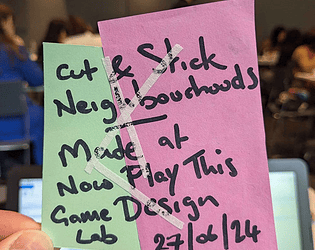 Cut & Stick
Neighbourhoods
Made at
Now Play This
Game Design
Lab 27/06/24